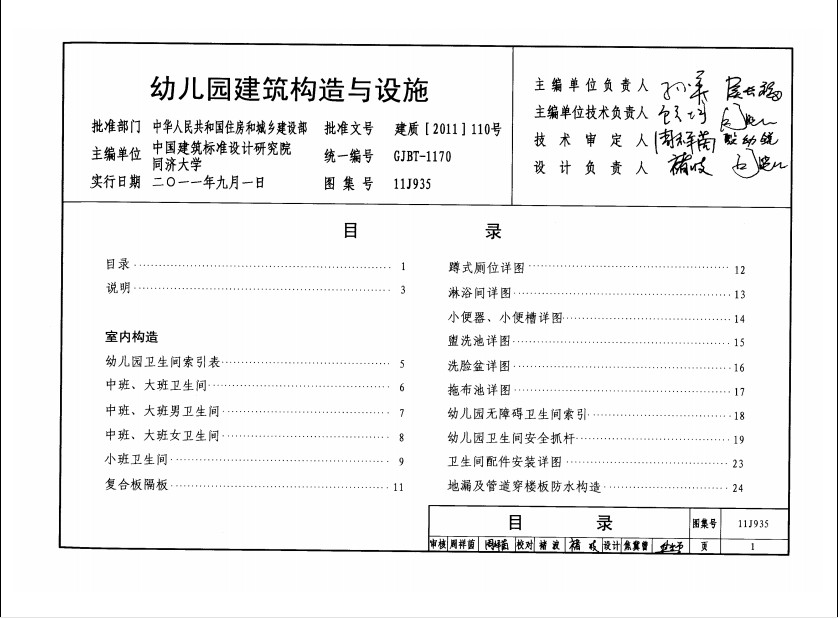 幼儿园建筑构造与设施
批准部门 中华人民共和国住房和城乡建设部 批准文号 建质[2011]110号
主编单位 中国建筑标准设计研究院 同济大学 统一编号 GJBT-1170
实行日期 二○一一年九月一日 图集号 11J935
主编单位负责人
主编单位技术负责人
技术审定人
设计负责人
目 录
目录 1
说明 3
室内构造
幼儿园卫生间索引表 5
中班、大班卫生间 6
中班、大班男卫生间 7
中班、大班女卫生间 8
小班卫生间 9
复合板隔板 11
蹲式厕位详图 12
淋浴间详图 13
小便器、小便槽详图 14
盥洗池详图 15
洗脸盆详图 16
拖布池详图 17
幼儿园无障碍卫生间索引 18
幼儿园卫生间安全抓杆 19
卫生间配件安装详图 23
地漏及管道穿楼板防水构造 24
目 录 图集号 11J935
审核 周祥茵 校对 褚波 设计 焦冀曾 页 1